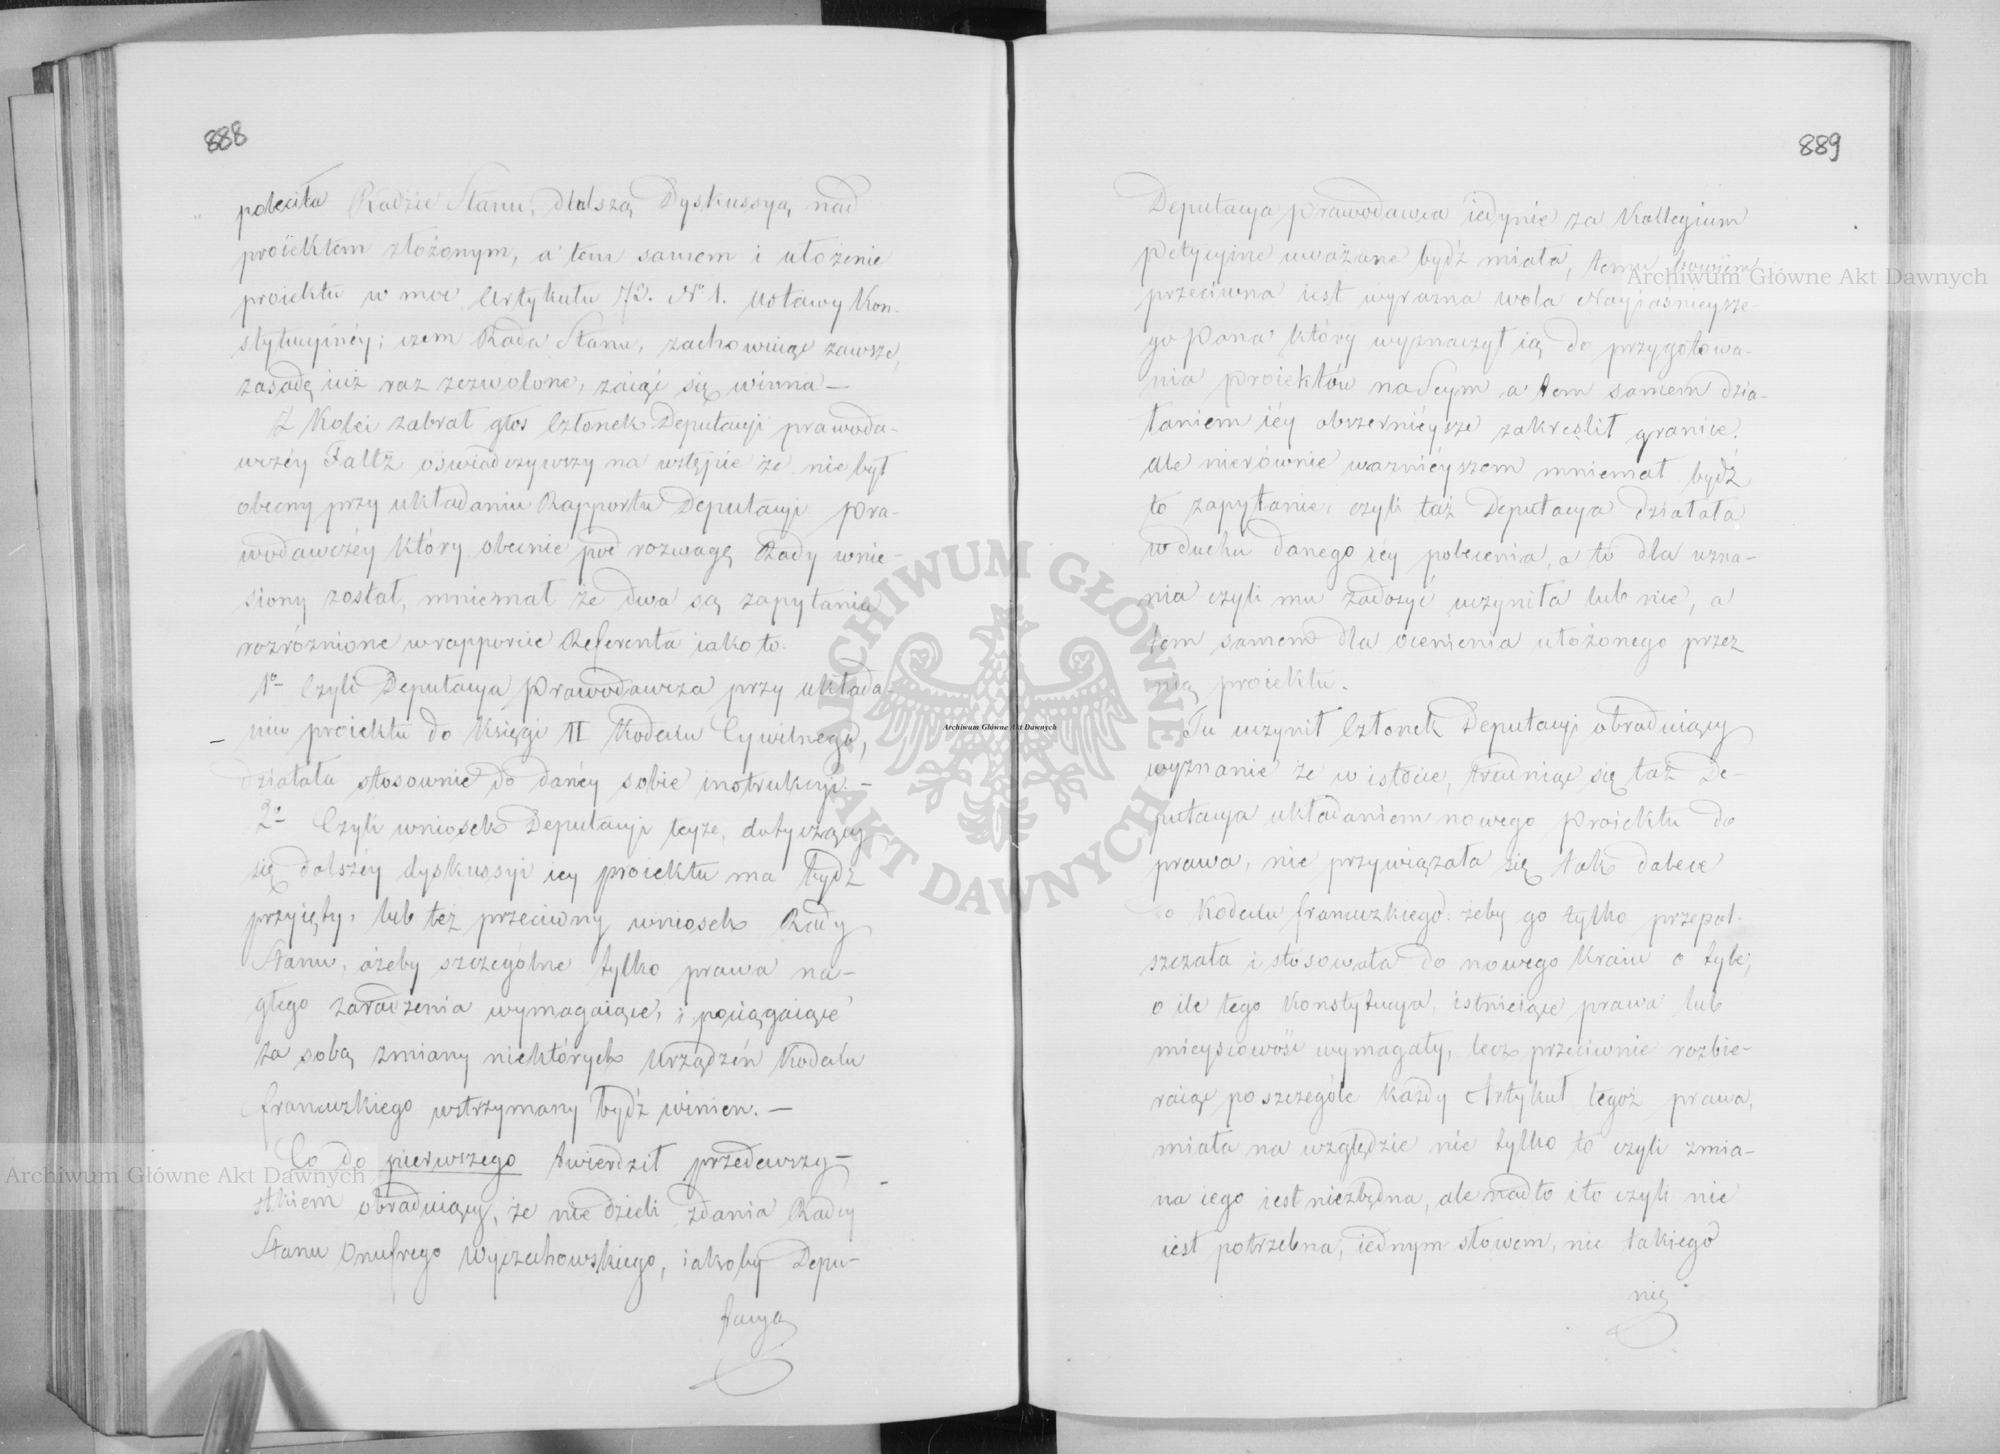 888
poleciła Radzie Stanu, dalszą Dyskussyą nad
proiektem złożonym, a tem samem i ułożenie
proiektu w moc Artykułu 73. No 1. Ustawy Kon-
stytucyinéy; czem Rada Stanu, zachowuiąc zawsze,
zasadę iuż raz zezwolone, zaiąć się winna —
Z Kolei zabrał głos Członek Deputacyi prawoda-
wczéy Faltz oświadczywszy na wstępie że nie był
obecny przy układaniu Rapportu Deputacyi pra-
wodawczéy który obecnie pod rozwagę Rady wnie-
siony został, mniemał że dwa są zapytania
rozróżnione w rapporcie Referenta iako to:
1o Czyli Deputacya prawodawcza przy układa-
niu proiektu do Księgi II Kodexu Cywilnego,
działała stosownie do danéy sobie instrukcyi. —
2o Czyli wniosek Deputacyi teyże, dotyczący
się dalszéy dyskussyi iey proiektu ma bydź
przyięty, lub też przeciwny wniosek Rady
Stanu, ażeby szczególne tylko prawa na-
głego zaradzenia wymagaiące, i pociągaiące
za sobą zmiany niektórych urządzéń Kodexu
francuzkiego wstrzymany bydź winien. —
Co do pierwszego twierdził przedewszy-
stkiem obraduiący, że nie dzieli zdania Radcy
Stanu Onufrego Wyczechowskiego, iakoby Depu-
tacya
889
Deputacya prawodawcza iedynie za Kollegium
petycyine uważane bydź miała, temu bowiem
przeciwna iest wyrazna wola Nayiaśnieysze-
go Pana który wyznaczył ią do przygotowa-
nia proiektów na Seym a tem samem dzia-
łaniem iéy obszernieysze zakreślił granice.
Ale nierównie ważniéyszem mniemał bydź
to zapytanie, czyli taż Deputacya działała
w duchu danego iéy polecenia, a to dla uzna-
nia czyli mu zadosyć uczyniła lub nie, a
tem samem dla ocenienia ułożonego przez
nią proiektu.
Tu uczynił Członek Deputacyi obraduiący
wyznanie że w istocie, trudniąc się taż De-
putacya układaniem nowego proiektu do
prawa, nie przywiązała się tak dalece
do Kodexu francuzkiego: żeby go tylko przepol-
szczała i stosowała do nowego Kraiu o tyle;
o ile tego Konstytucya, istnieiące prawa lub
mieyscowość wymagały, lecz przeciwnie rozbie-
raiąc poszczególe każdy Artykuł tegoż prawa,
miała na względzie nie tylko to czyli zmia-
na iego iest niezbędna, ale nadto i to czyli nie
iest potrzebna, iednym słowem, nie takiego
nie
Archiwum Główne Akt Dawnych
Archiwum Główne Akt Dawnych
Archiwum Główne Akt Dawnych
ARCHIWUM GŁÓWNE
AKT DAWNYCH